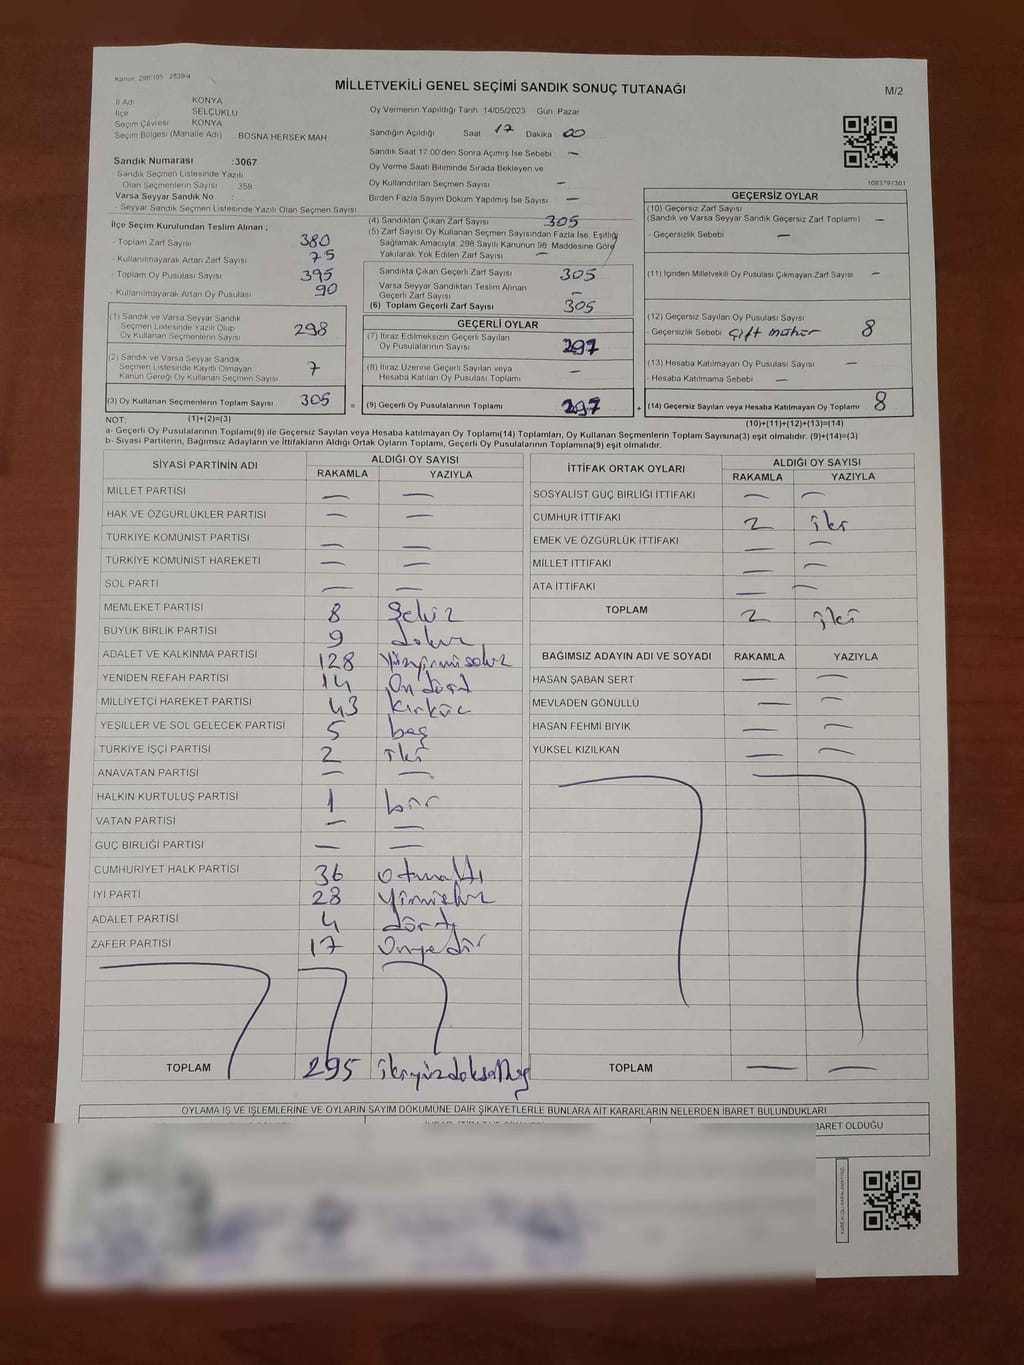 Kanun: 298/105 2839/4
MİLLETVEKİLİ GENEL SEÇİMİ SANDIK SONUÇ TUTANAĞI
M/2
İl Adı KONYA
İlçe SELÇUKLU
Seçim Çevresi KONYA
Seçim Bölgesi (Mahalle Adı) BOSNA HERSEK MAH
Sandık Numarası :3067
- Sandık Seçmen Listesinde Yazılı
Olan Seçmenlerin Sayısı 358
Varsa Seyyar Sandık No :
- Seyyar Sandık Seçmen Listesinde Yazılı Olan Seçmen Sayısı:
Oy Vermenin Yapıldığı Tarih 14/05/2023 Gün Pazar
Sandığın Açıldığı Saat 17 Dakika 00
Sandık Saat 17.00'den Sonra Açımış İse Sebebi : —
Oy Verme Saati Bitiminde Sırada Bekleyen ve
Oy Kullandırılan Seçmen Sayısı —
Birden Fazla Sayım Döküm Yapılmış İse Sayısı —
1083791301
İlçe Seçim Kurulundan Teslim Alınan ;
- Toplam Zarf Sayısı 380
- Kullanılmayarak Artan Zarf Sayısı 75
- Toplam Oy Pusulası Sayısı 395
- Kullanılmayarak Artan Oy Pusulası 90
(1) Sandık ve Varsa Seyyar Sandık
Seçmen Listesinde Yazılı Olup
Oy Kullanan Seçmenlerin Sayısı 298
(2) Sandık ve Varsa Seyyar Sandık
Seçmen Listesinde Kayıtlı Olmayan
Kanun Gereği Oy Kullanan Seçmen Sayısı 7
(3) Oy Kullanan Seçmenlerin Toplam Sayısı 305
(4) Sandıktan Çıkan Zarf Sayısı 305
(5) Zarf Sayısı Oy Kullanan Seçmen Sayısından Fazla İse, Eşitliği
Sağlamak Amacıyla, 298 Sayılı Kanunun 98. Maddesine Göre
Yakılarak Yok Edilen Zarf Sayısı —
Sandıkta Çıkan Geçerli Zarf Sayısı 305
Varsa Seyyar Sandıktan Teslim Alınan
Geçerli Zarf Sayısı —
(6) Toplam Geçerli Zarf Sayısı 305
GEÇERLİ OYLAR
(7) İtiraz Edilmeksizin Geçerli Sayılan
Oy Pusulalarının Sayısı 297
(8) İtiraz Üzerine Geçerli Sayılan veya
Hesaba Katılan Oy Pusulası Toplamı —
= (9) Geçerli Oy Pusulalarının Toplamı 297
GEÇERSİZ OYLAR
(10) Geçersiz Zarf Sayısı
(Sandık ve Varsa Seyyar Sandık Geçersiz Zarf Toplamı) —
- Geçersizlik Sebebi —
(11) İçinden Milletvekili Oy Pusulası Çıkmayan Zarf Sayısı —
(12) Geçersiz Sayılan Oy Pusulası Sayısı
- Geçersizlik Sebebi çift mühür 8
(13) Hesaba Katılmayan Oy Pusulası Sayısı —
- Hesaba Katılmama Sebebi —
+ (14) Geçersiz Sayılan veya Hesaba Katılmayan Oy Toplamı 8
NOT: (1)+(2)=(3)
(10)+(11)+(12)+(13)=(14)
a- Geçerli Oy Pusulalarının Toplamı(9) ile Geçersiz Sayılan veya Hesaba katılmayan Oy Toplamı(14) Toplamları, Oy Kullanan Seçmenlerin Toplam Sayısına(3) eşit olmalıdır. (9)+(14)=(3)
b- Siyasi Partilerin, Bağımsız Adayların ve İttifakların Aldığı Ortak Oyların Toplamı, Geçerli Oy Pusulalarının Toplamına(9) eşit olmalıdır.
SİYASİ PARTİNİN ADI ALDIĞI OY SAYISI
RAKAMLA YAZIYLA
MİLLET PARTİSİ — —
HAK VE ÖZGÜRLÜKLER PARTİSİ — —
TÜRKİYE KOMÜNİST PARTİSİ — —
TÜRKİYE KOMÜNİST HAREKETİ — —
SOL PARTİ — —
MEMLEKET PARTİSİ 8 Sekiz
BÜYÜK BİRLİK PARTİSİ 9 dokuz
ADALET VE KALKINMA PARTİSİ 128 yüzyirmisekiz
YENİDEN REFAH PARTİSİ 14 On dört
MİLLİYETÇİ HAREKET PARTİSİ 43 kırküç
YEŞİLLER VE SOL GELECEK PARTİSİ 5 beş
TÜRKİYE İŞÇİ PARTİSİ 2 iki
ANAVATAN PARTİSİ — —
HALKIN KURTULUŞ PARTİSİ 1 bir
VATAN PARTİSİ — —
GÜÇ BİRLİĞİ PARTİSİ — —
CUMHURİYET HALK PARTİSİ 36 otuzaltı
İYİ PARTİ 28 yirmisekiz
ADALET PARTİSİ 4 dört
ZAFER PARTİSİ 17 Onyedi
TOPLAM 295 ikiyüzdoksanbeş
İTTİFAK ORTAK OYLARI ALDIĞI OY SAYISI
RAKAMLA YAZIYLA
SOSYALİST GÜÇ BİRLİĞİ İTTİFAKI — —
CUMHUR İTTİFAKI 2 iki
EMEK VE ÖZGÜRLÜK İTTİFAKI — —
MİLLET İTTİFAKI — —
ATA İTTİFAKI — —
TOPLAM 2 iki
BAĞIMSIZ ADAYIN ADI VE SOYADI RAKAMLA YAZIYLA
HASAN ŞABAN SERT — —
MEVLADEN GÖNÜLLÜ — —
HASAN FEHMİ BIYIK — —
YÜKSEL KIZILKAN — —
TOPLAM — —
OYLAMA İŞ VE İŞLEMLERİNE VE OYLARIN SAYIM DÖKÜMÜNE DAİR ŞİKAYETLERLE BUNLARA AİT KARARLARIN NELERDEN İBARET BULUNDUKLARI
BARET OLDUĞU